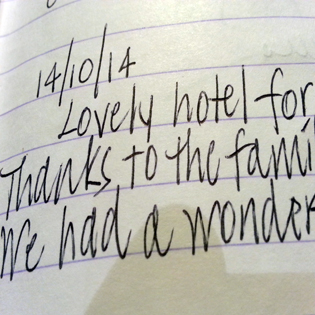 14/10/14
Lovely hotel for
Thanks to the fami
We had a wonder